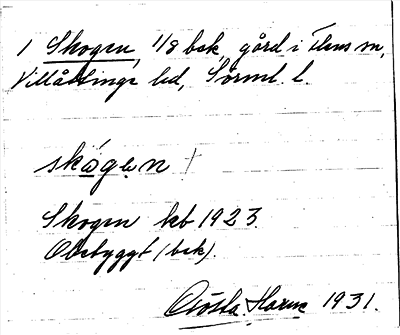 1 Skogen, 1/8 bsk, gård i Flens sn,
Villåttinge hd, Sörml. l.
skógen
Skogen kb 1923.
Obebyggt (bsk).
Gösta 1931.